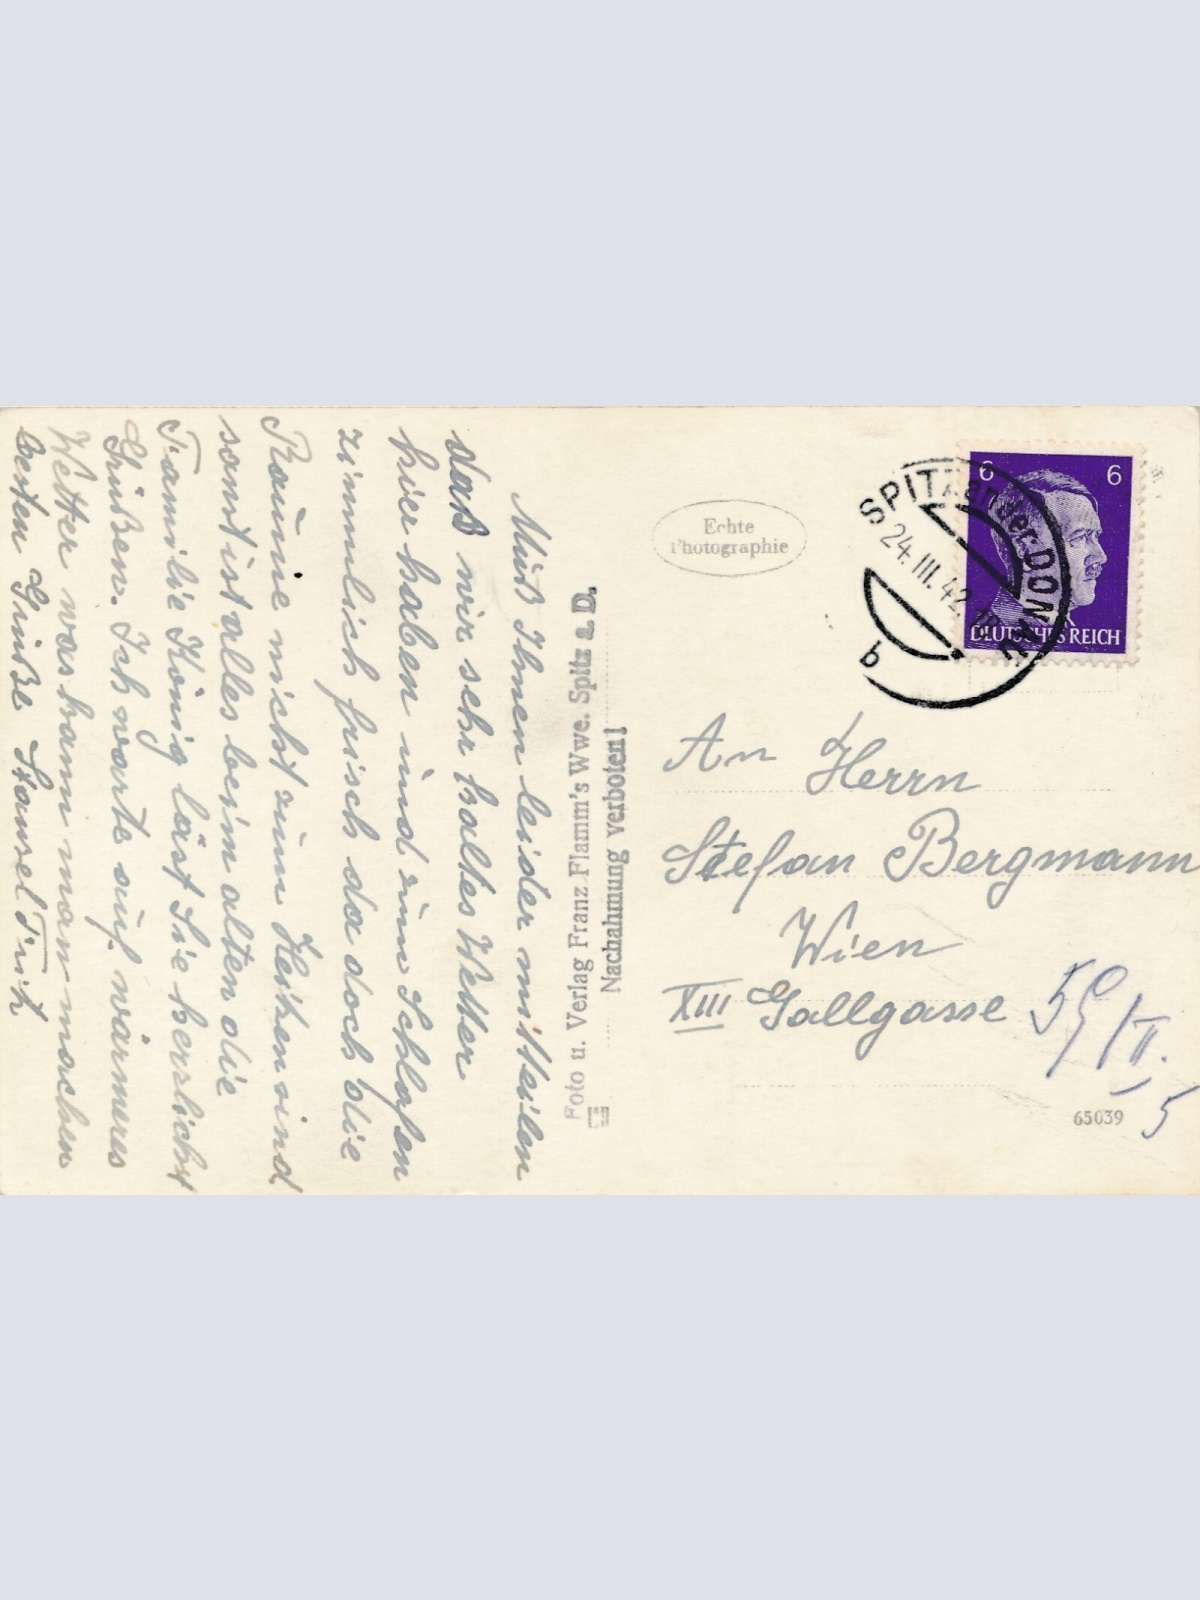 Muß Ihnen leider mitteilen
daß wir sehr kaltes Wetter
hier haben und zum Schlafen
zimmlich frisch da doch die
Räume nicht zum Heizen sind
sonst ist alles beim alten die
Familie König läst Sie herzlichst
Grüßen. Ich warte auf wärmeres
Wetter was kann man machen
besten Grüße
Foto u. Verlag Franz Flamm's Wwe. Spitz a. D.
Nachahmung verboten!
Echte
Photographie
6 6
DEUTSCHES REICH
SPITZ an der DONAU
24.III.42
b
An Herrn
Stefan Bergmann
Wien
XIII Gallgasse
65039